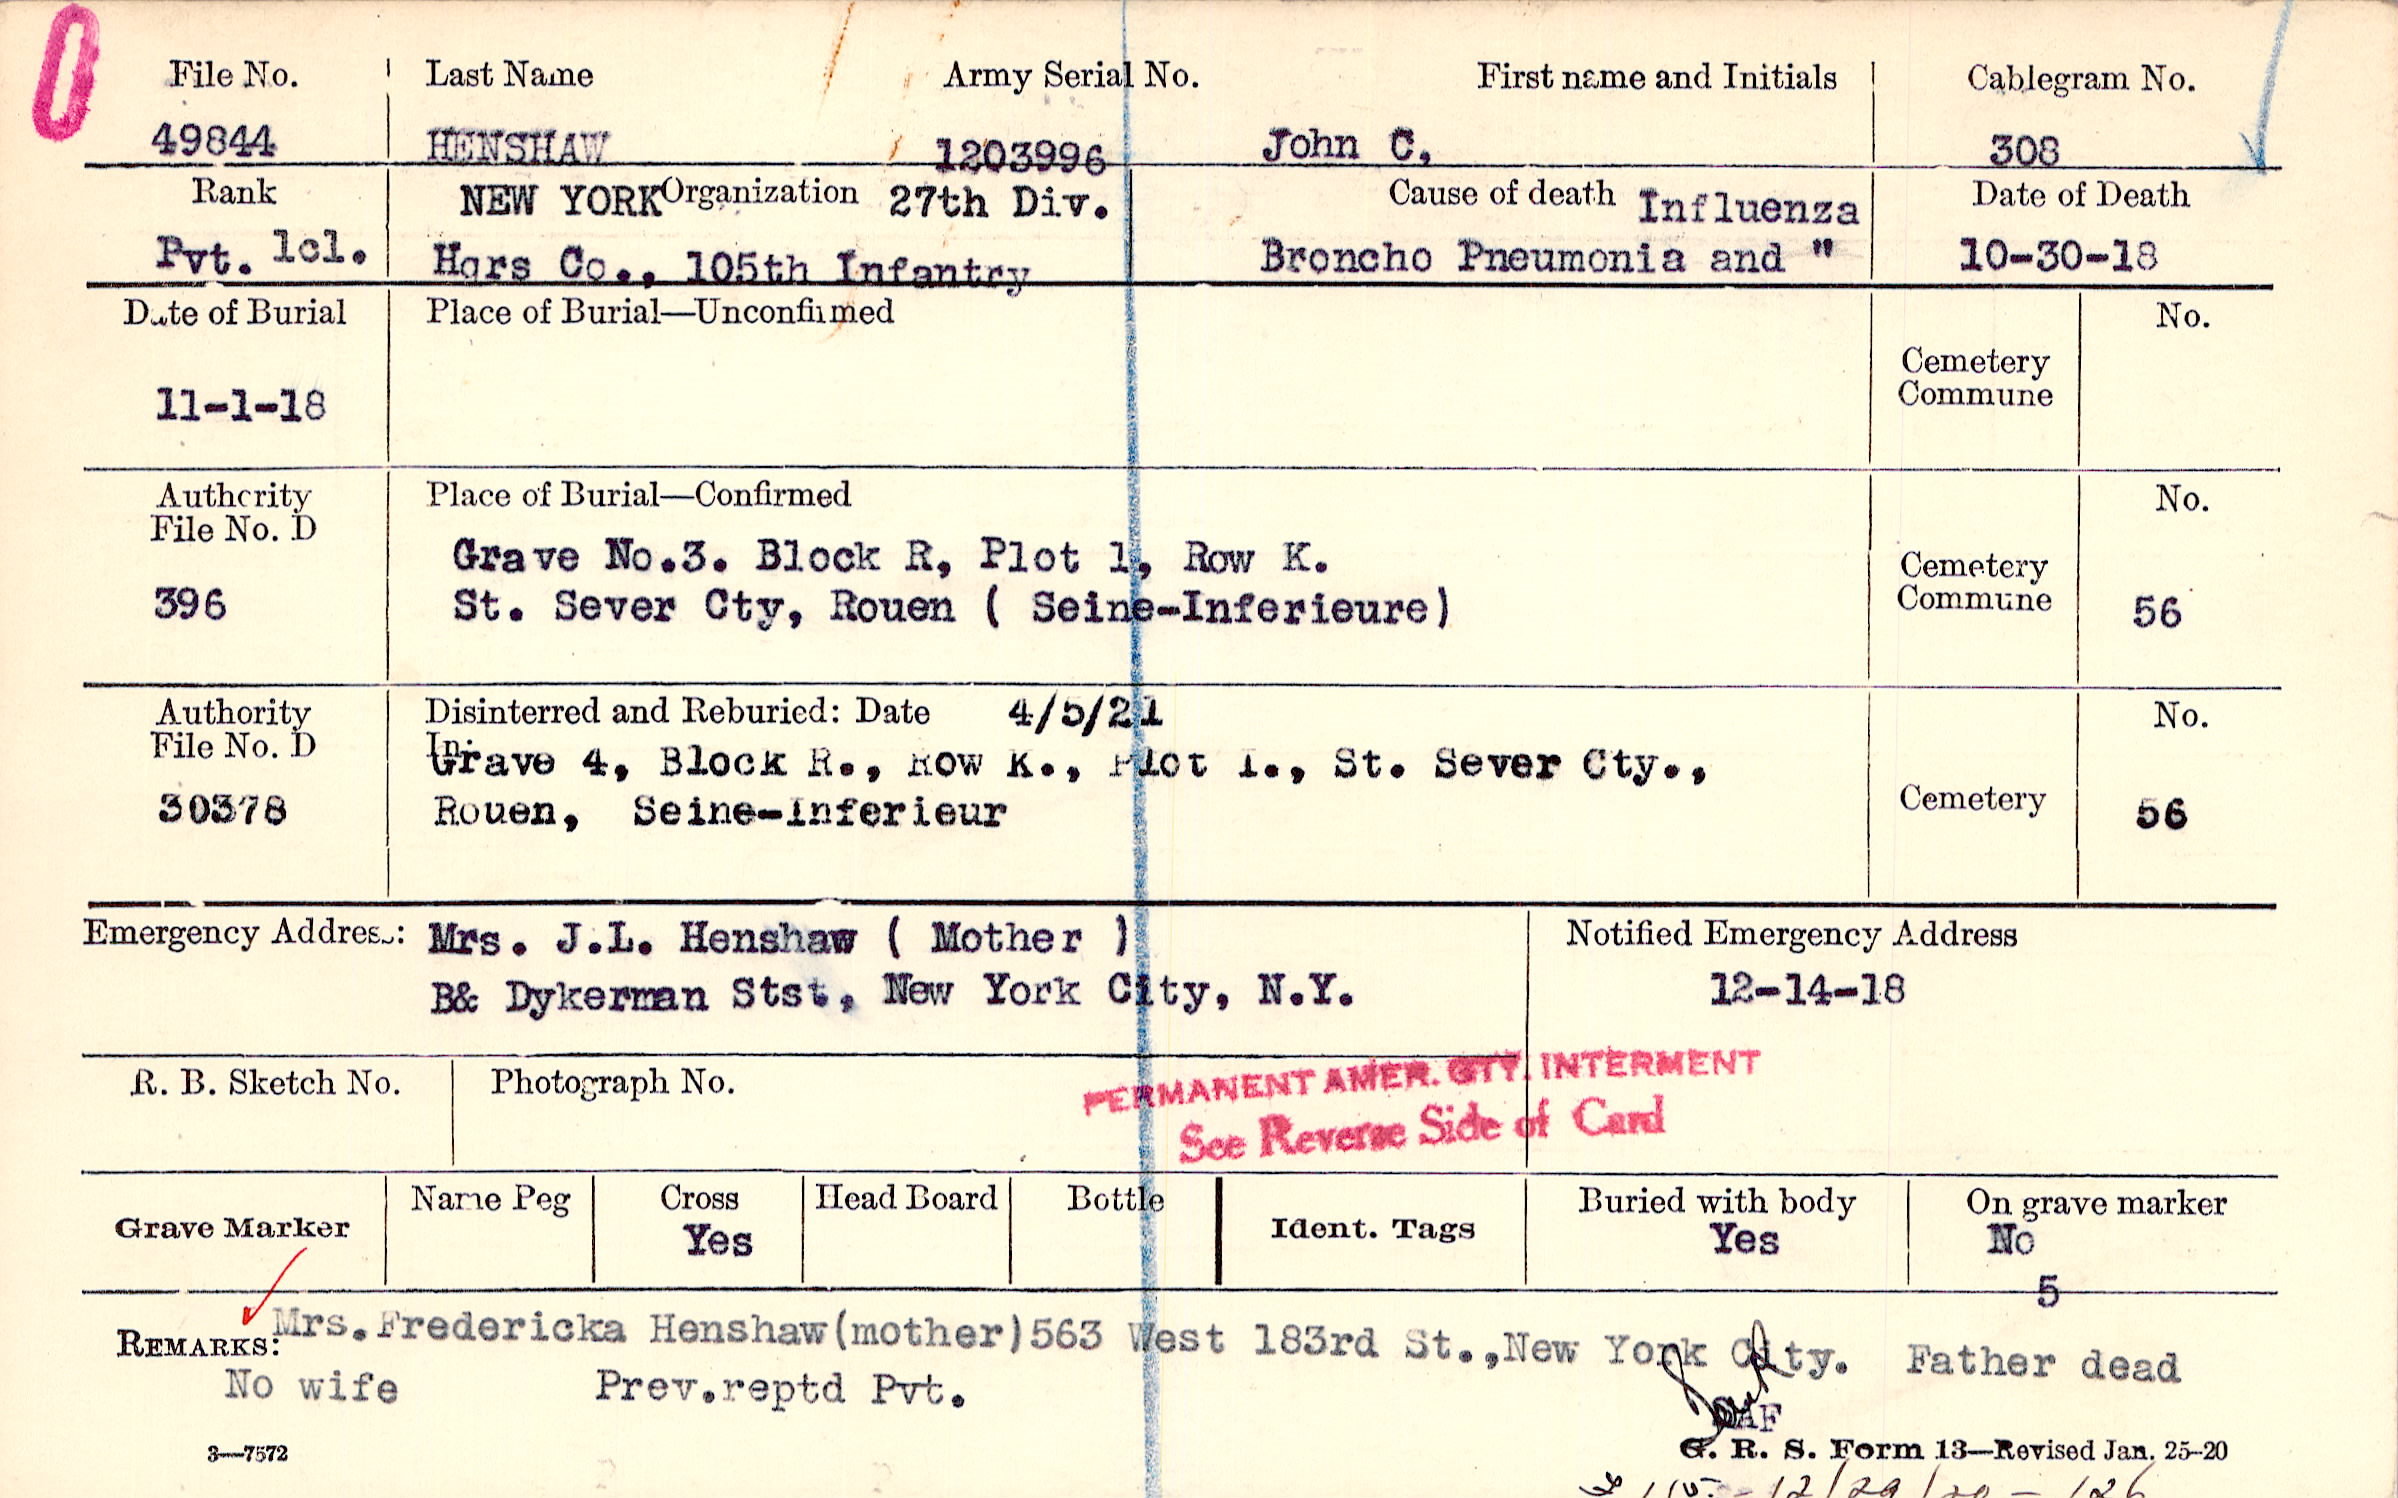 File No. Last Name Army Serial No. First name and Initials Cablegram No.
49844 HENSHAW 1203996 John C, 308
Rank NEW YORK Organization 27th Div. Cause of death Influenza Date of Death
Pvt. 1cl. Hqrs Co., 105th Infantry Broncho Pneumonia and " 10-30-18
Date of Burial Place of Burial—Unconfirmed No.
Cemetery
Commune
11-1-18
Authority Place of Burial—Confirmed No.
File No. D
Grave No.3. Block R, Plot 1, Row K. Cemetery
396 St. Sever Cty, Rouen ( Seine-Inferieure) Commune 56
Authority Disinterred and Reburied: Date 4/5/21 No.
File No. D In:
Grave 4, Block R., Row K., Plot 1., St. Sever Cty.,
30378 Rouen, Seine-Inferieur Cemetery 56
Emergency Address: Mrs. J.L. Henshaw ( Mother ) Notified Emergency Address
B& Dykerman Stst, New York City, N.Y. 12-14-18
R. B. Sketch No. Photograph No.
PERMANENT AMER. CTY. INTERMENT
See Reverse Side of Card
Grave Marker Name Peg Cross Head Board Bottle Ident. Tags Buried with body On grave marker
Yes Yes No
5
REMARKS: Mrs.Fredericka Henshaw(mother)563 West 183rd St.,New York City. Father dead
No wife Prev.reptd Pvt.
3—7572 G. R. S. Form 13—Revised Jan. 25-20